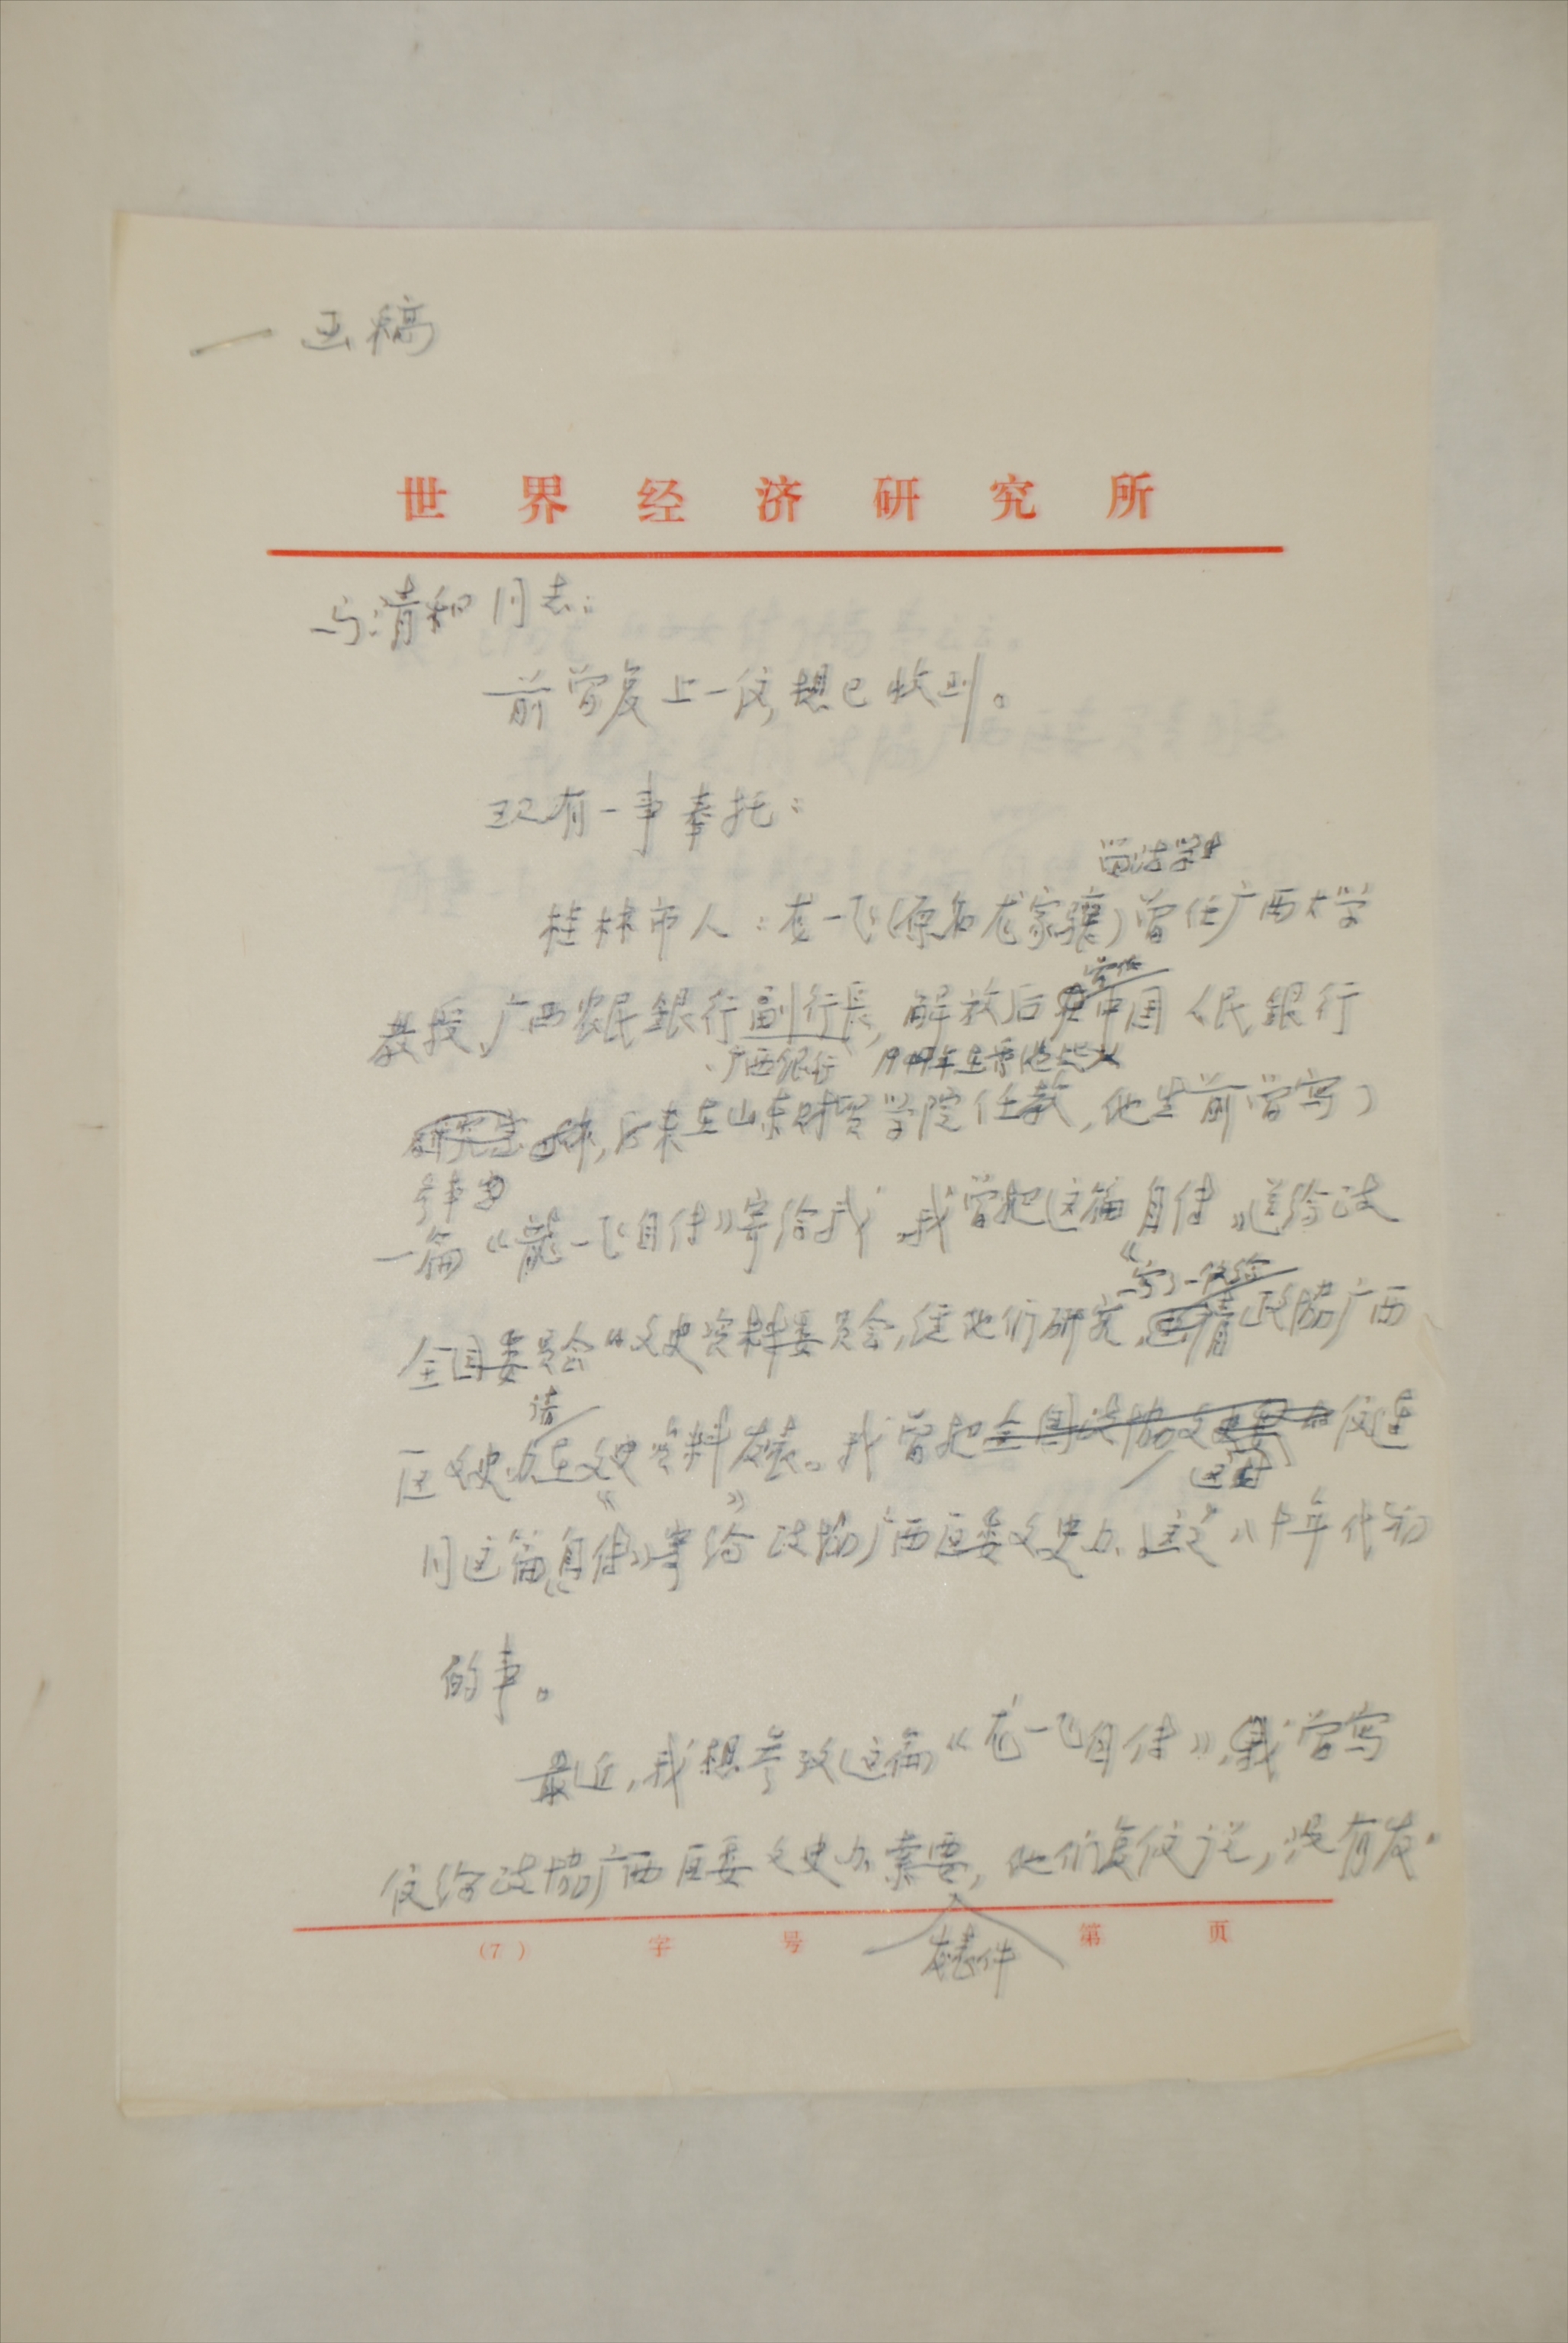 一函稿
世界经济研究所
马清和同志:
前曾复上一信,想已收到。
现有一事奉托:
曾法学
桂林市人:龙一飞(原名龙家骧)曾任广西大学
曾任
教授、广西农民銀行副行長,解放后在中国人民銀行
、广西银行 1949年在香港
研究室 ,后来在山东财贸学院任教,他生前曾写了
参事室
一篇《龍一飞自传》寄给我,我曾把这篇自传》送给政
写了一信给
全国委员会文史资料委员会,经他们研究,函请政协广西
请
区文史办在文史资料发表。我曾把全国政协文史 信连
这封
同这篇《自传》寄给政协广西区委文史办,这是八十年代初
的事。
最近,我想参考这篇《龙一飞自传》,我曾写
信给政协广西区委文史办索要,他们复信说,没有发
(7) 字 号 第 页
发表件